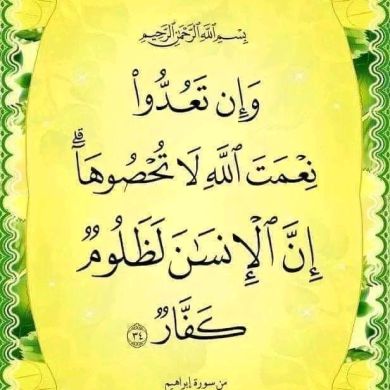 بِسْمِ ٱللَّهِ ٱلرَّحْمَٰنِ ٱلرَّحِيمِ
وَإِن تَعُدُّوا۟
نِعْمَتَ ٱللَّهِ لَا تُحْصُوهَآ ۗ
إِنَّ ٱلْإِنسَٰنَ لَظَلُومٌ
كَفَّارٌ ﴿٣٤﴾
من سورة إبراهيم